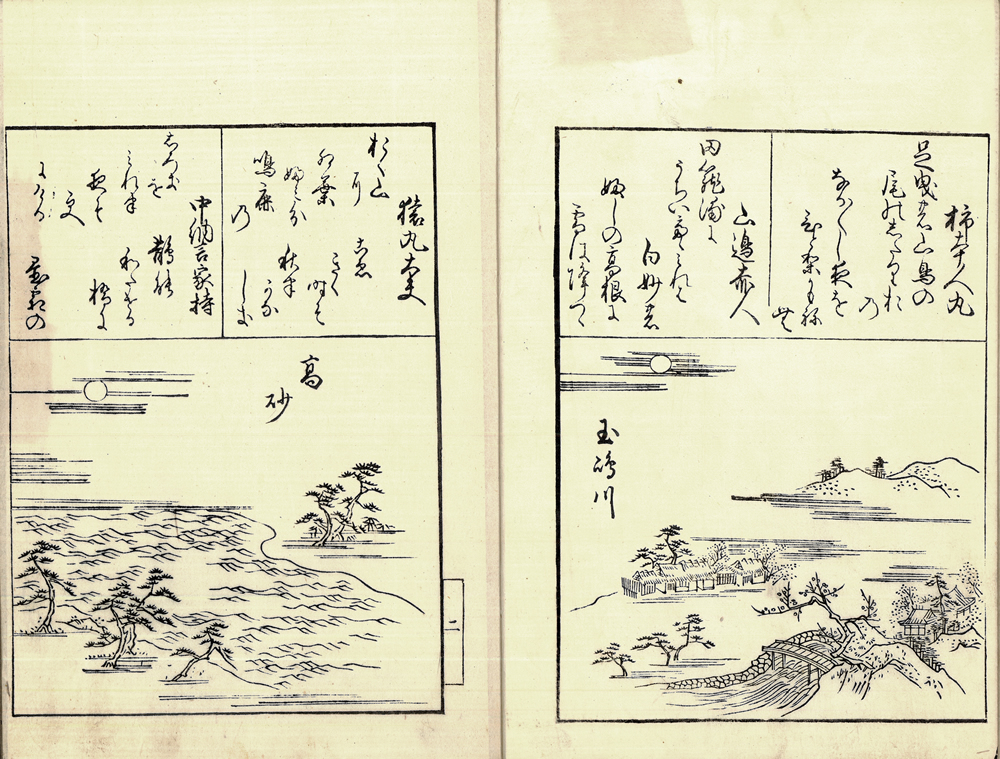 柿本人丸
足曳の山鳥の
尾のしたり尾
の
なか〱し夜を
ひとりかもね
む
山邉赤人
田籠浦に
うち出てみれは
白妙の
ふしの高根に
雪は降つゝ
玉嶋川
猿丸太夫
おく山に
紅葉
ふみわけ
鳴鹿の
こゑ
きく時そ
秋は
かな
しき
中納言家持
鵲の
わたせる
橋に
置霜の
しろき
を
みれは
夜そ
更
にける
高
砂
二